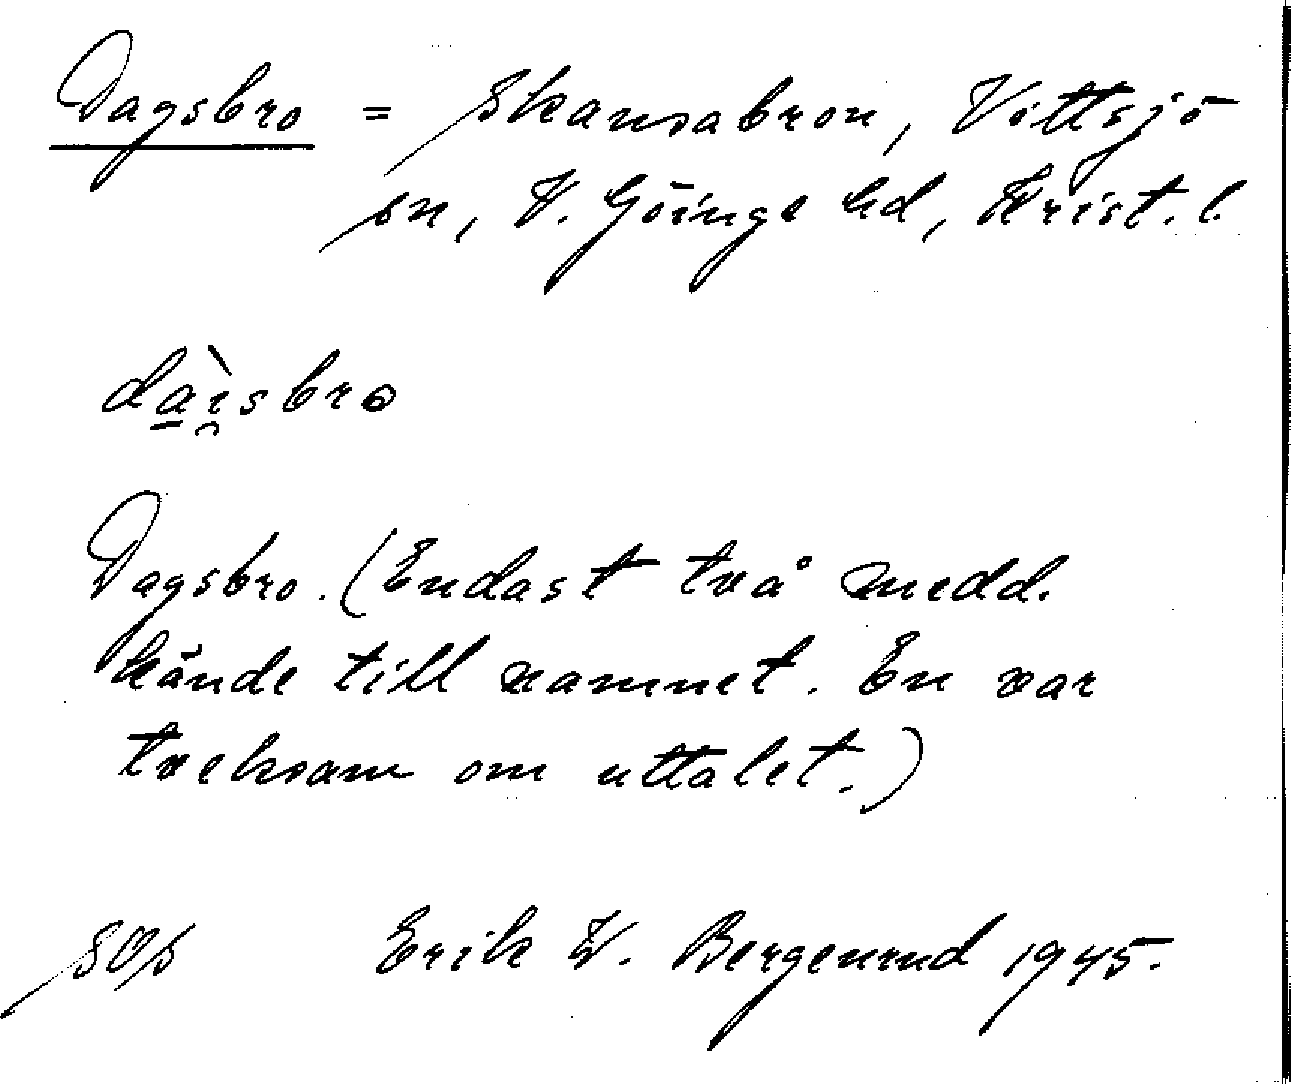 Dagsbro = Skansabron, Vittsjö
sn, V. Göinge hd, Krist. l.
da̱ì̯sbro
Dagsbro. (Endast två medd.
kände till namnet. En var
tveksam om uttalet.)
Erik W. Bergenrud 1945.